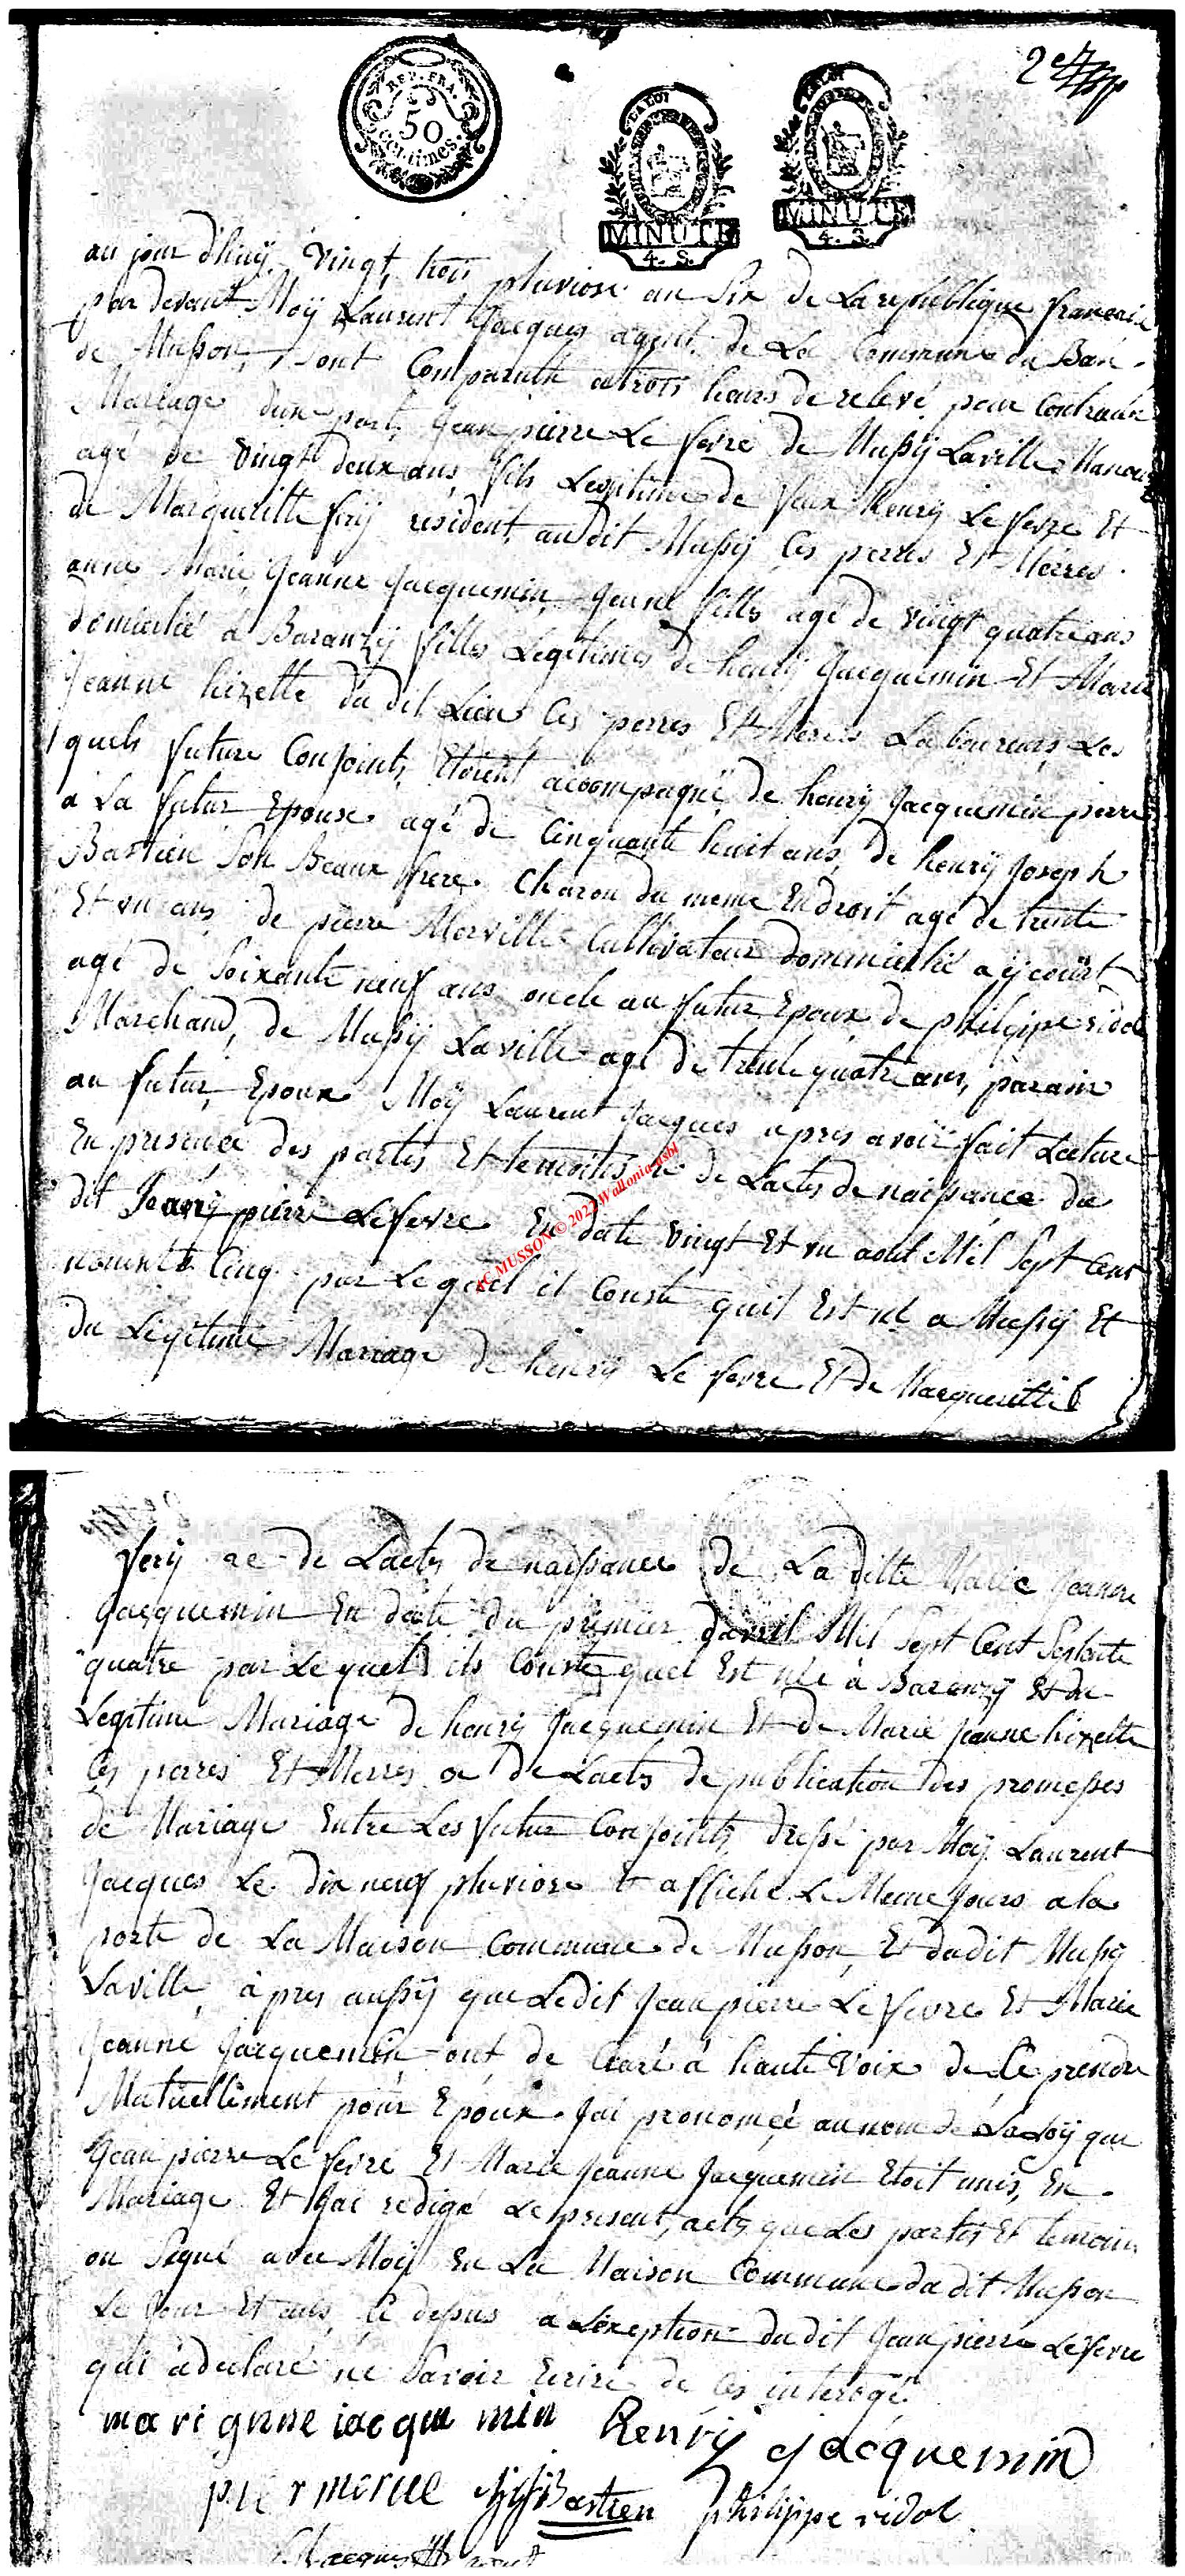 2e
REP. FRA.
50
centimes
LA LOI
MINUTE
4. S.
LA LOI
MINUTE
4. S.
au jour d'huÿ vingt trois pluviose an Six de La republique francaise
par devant Moÿ Laurent Jacques agent de La Commune du Ban
de Musson, sont Comparuth a trois heurs de relevé pour Contracter
Mariage dune part Jean pierre Le fevre de Mussÿ Laville
agé de vingt deux ans fils Legitime de feux henrÿ Le fevre Et
de Margueritte ferÿ resident audit Mussÿ Ces perres Et Merres
anne Marie Jeanne Jacquemin Jeune fille agé de vingt quatre ans
domicilié a Baranzÿ filles Legitimes de henrÿ Jacquemin Et Marie
Jeanne hizette du dit Lieu Ces perres Et Merres Laboureurs Les
quels future Conjoints Etoient acoompagné de henrÿ Jacquemin perre
a La futur Epouse agé de Cinquante huit ans, de henrÿ Joseph
Bastien Son Beaux frere Charon du meme Endroit agé de trente
Et un ans de pierre Merville Cultivateur dommicilié a ÿcourt
agé de Soixante neuf ans oncle au futur Epoux de philippe ridol
Marchand, de Mussÿ Laville agé de trente quatre ans, parain
au futur Epoux Moÿ Laurent Jacques apres avoir fait Lecture
En presence des parties Et temoins de Lactes de naissance du
dit Jean pierre Lefevre En date vingt Et un aout Mil Sept Cent
Cinq par Le quel il Conste quil Est né a Mussÿ Et
du Legitime Mariage de henrÿ Le fevre Et de Margueritte
IC MUSSON © 2022 Wallonia-asbl
ferÿ 2e de Lactes de naissance de La ditte Marie Jeanne
Jacquemin En date du premier davril Mil Sept Cent Septente
quatre par Le quel ils Conste quel Est née à Baranzÿ Et du
Legitime Mariage de henrÿ Jacquemin Et de Marie Jeanne hizette
Ces perres Et Merres de Lactes de publication des promesses
de Mariage Entre Les futur Conjoints, dressé par Moÿ Laurent
Jacques Le dix neuf pluviose Et affiché Le Meme Jours a la
porte de La Maison Commune de Musson, Et dudit Mussÿ
Laville, àpres aussÿ que Ledit Jean pierre Le fevre Et Marie
Jeanne Jacquemin ont de Claré à haute voix de Ce prendre
Mutuellement pour Epoux. Jai prononcé au nom de La Loÿ que
Jean pierre Le fevre Et Marie Jeanne Jacquemin Etoit unis, En
Mariage Et Jai redigé Le present actes que Les parties Et temoins
on Signé avec Moÿ En La Maison Commune du dit Musson
Le Jour Et ans Ci dessus a Lexeption dudit Jean pierre Lefevre
qui à declaré ne Savoir Ecrire de Ces interogé
mari gnne iacque min henrÿ jacquemin
pier mervile Bastien philippe ridol
Jacques